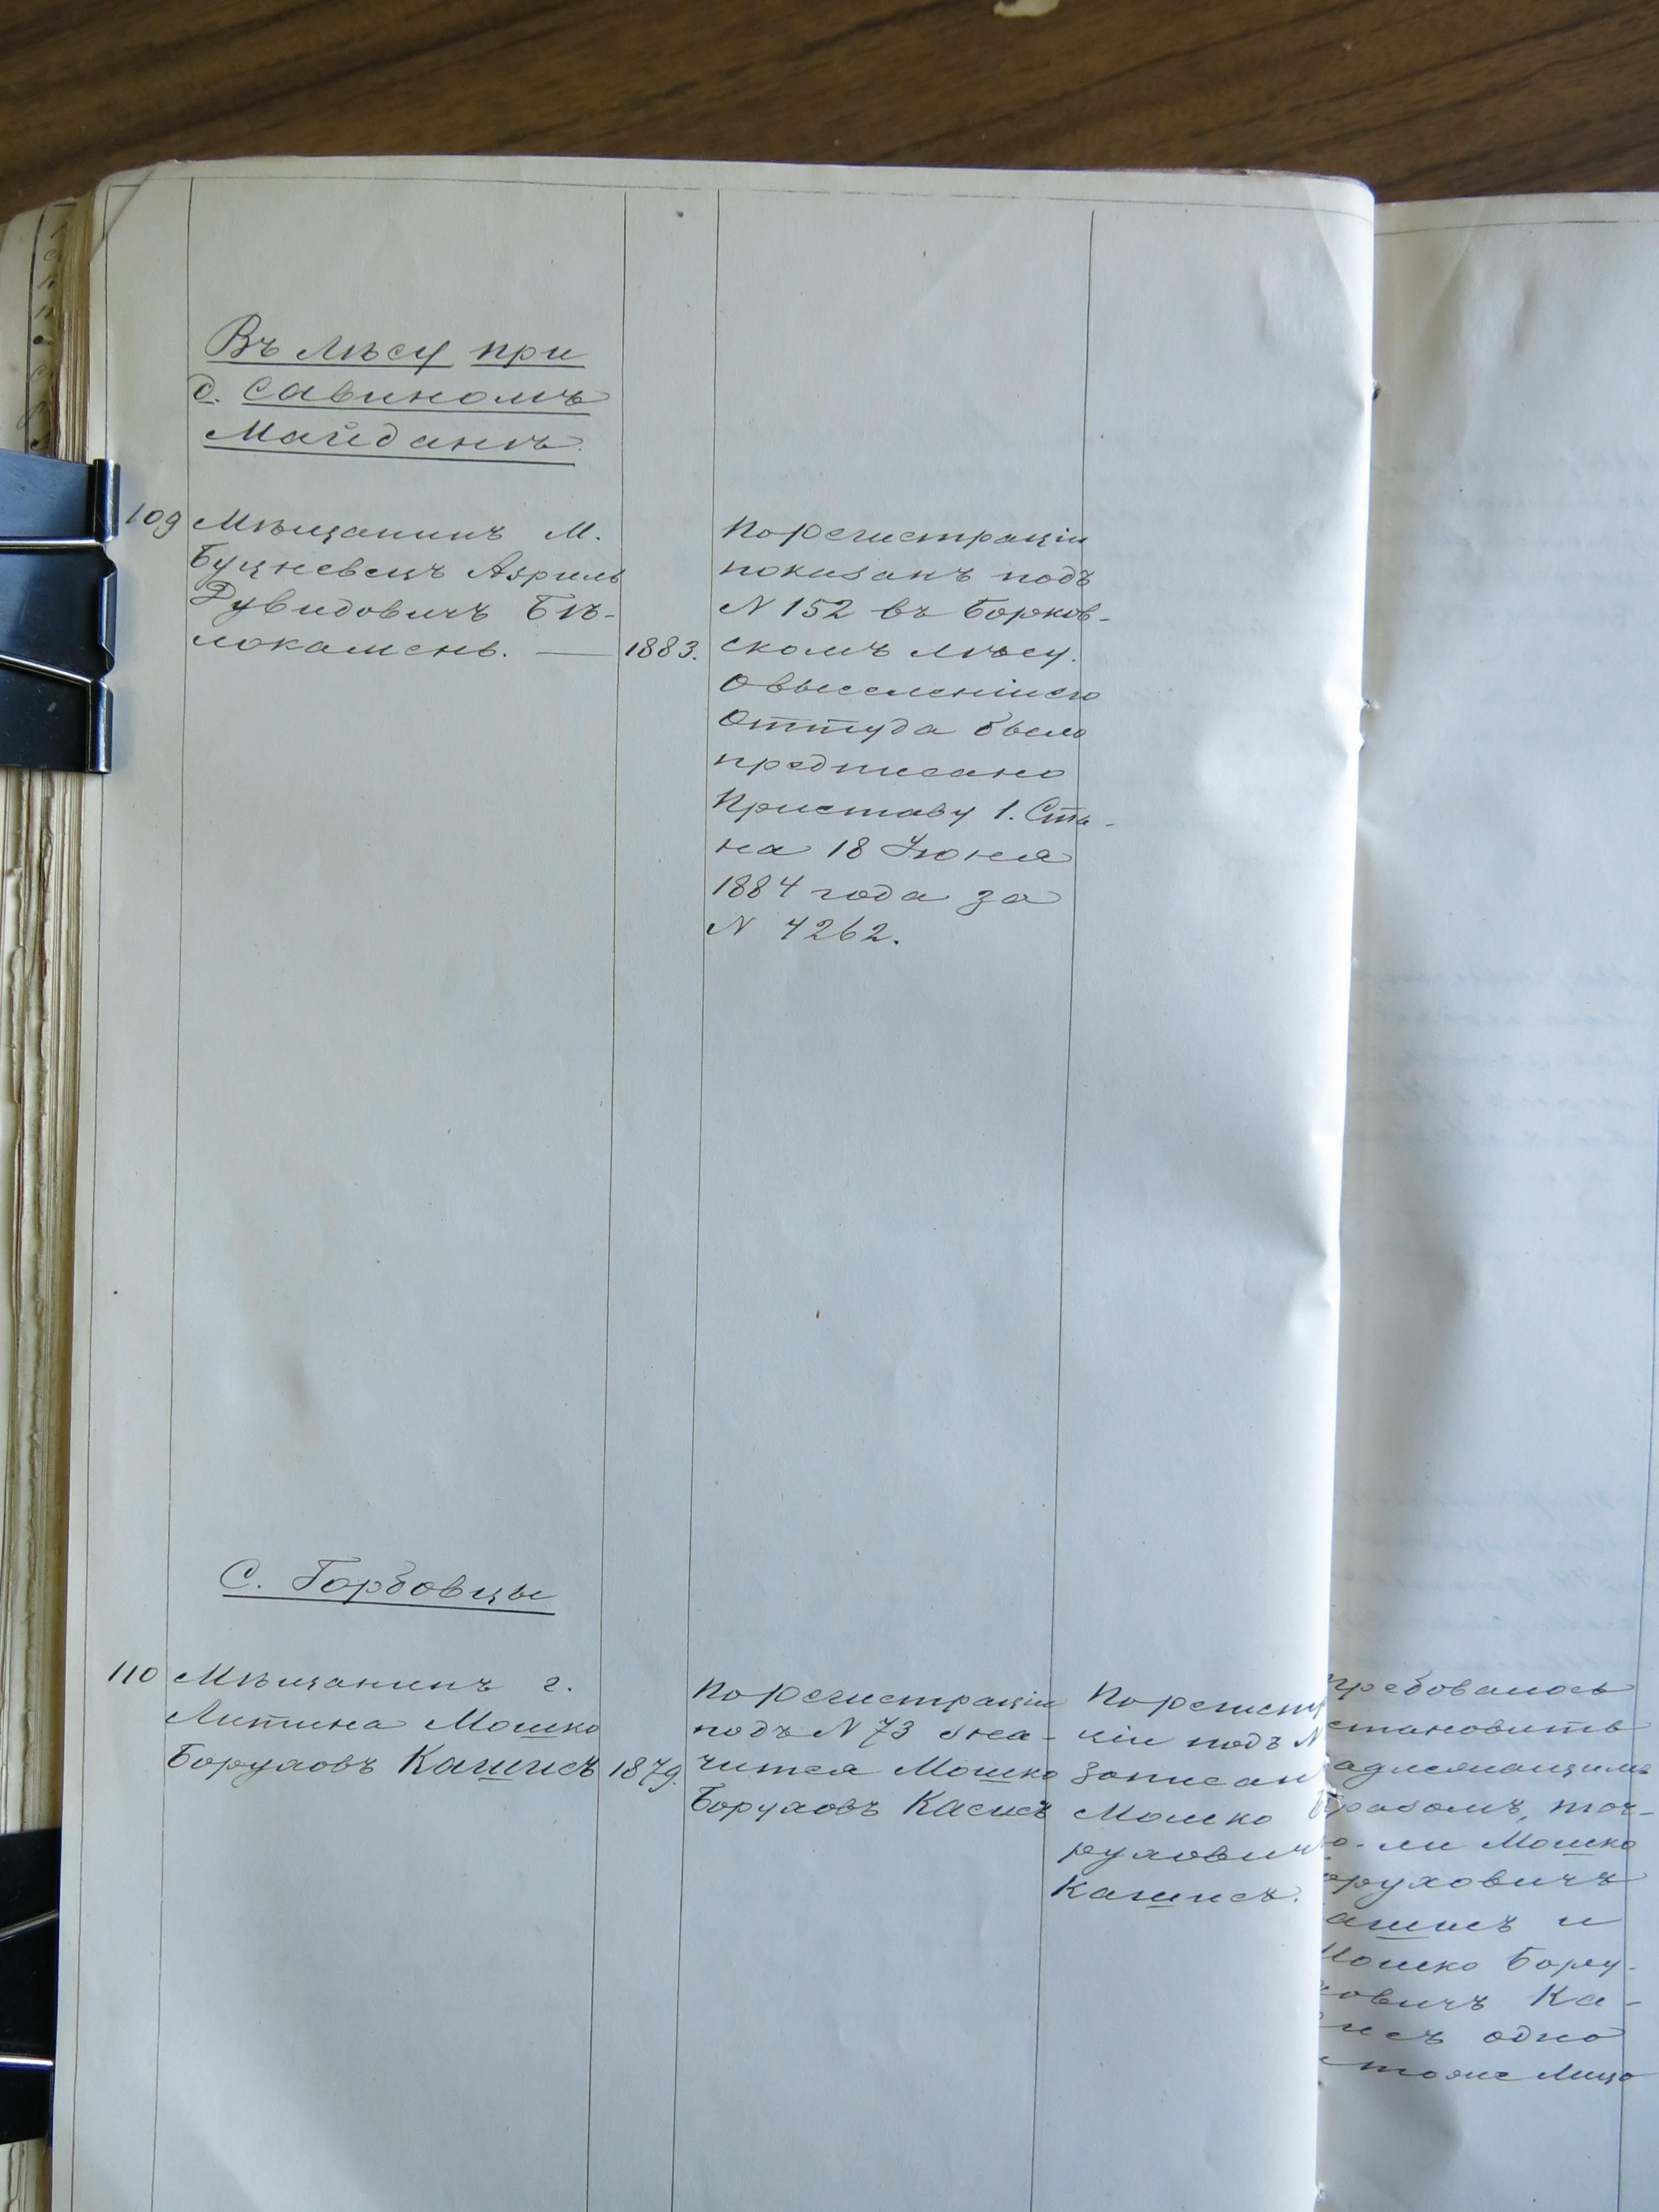 Въ лѣсу при
д. Савиномъ
Майданѣ.
109
Мѣщанинъ М.
Буцневецъ Азриль
Дувидовичъ Бѣ-
локамень. — 1883.
По регистраціи
показанъ подъ
N 152 въ Борков-
скомъ лѣсу.
О выселеніи его
оттуда было
предписано
Приставу 1. Ста-
на 18 Іюня
1884 года за
N 4262.
С. Горбовцы
110
Мѣщанинъ г.
Литина Мошко
Боруховъ Кашисъ 1879.
По регистраціи
подъ N 73 зна-
чится Мошко
Боруховъ Касисъ
По регист
ціи подъ N
записан
Мошко
рухович
Кашисъ.
требовалось
становить
адлежащимъ
бразомъ, точ-
о-ли Мошко
оруховичъ
ашисъ и
Мошко Бору-
ховичъ Ка-
исъ одно
тоже лицо